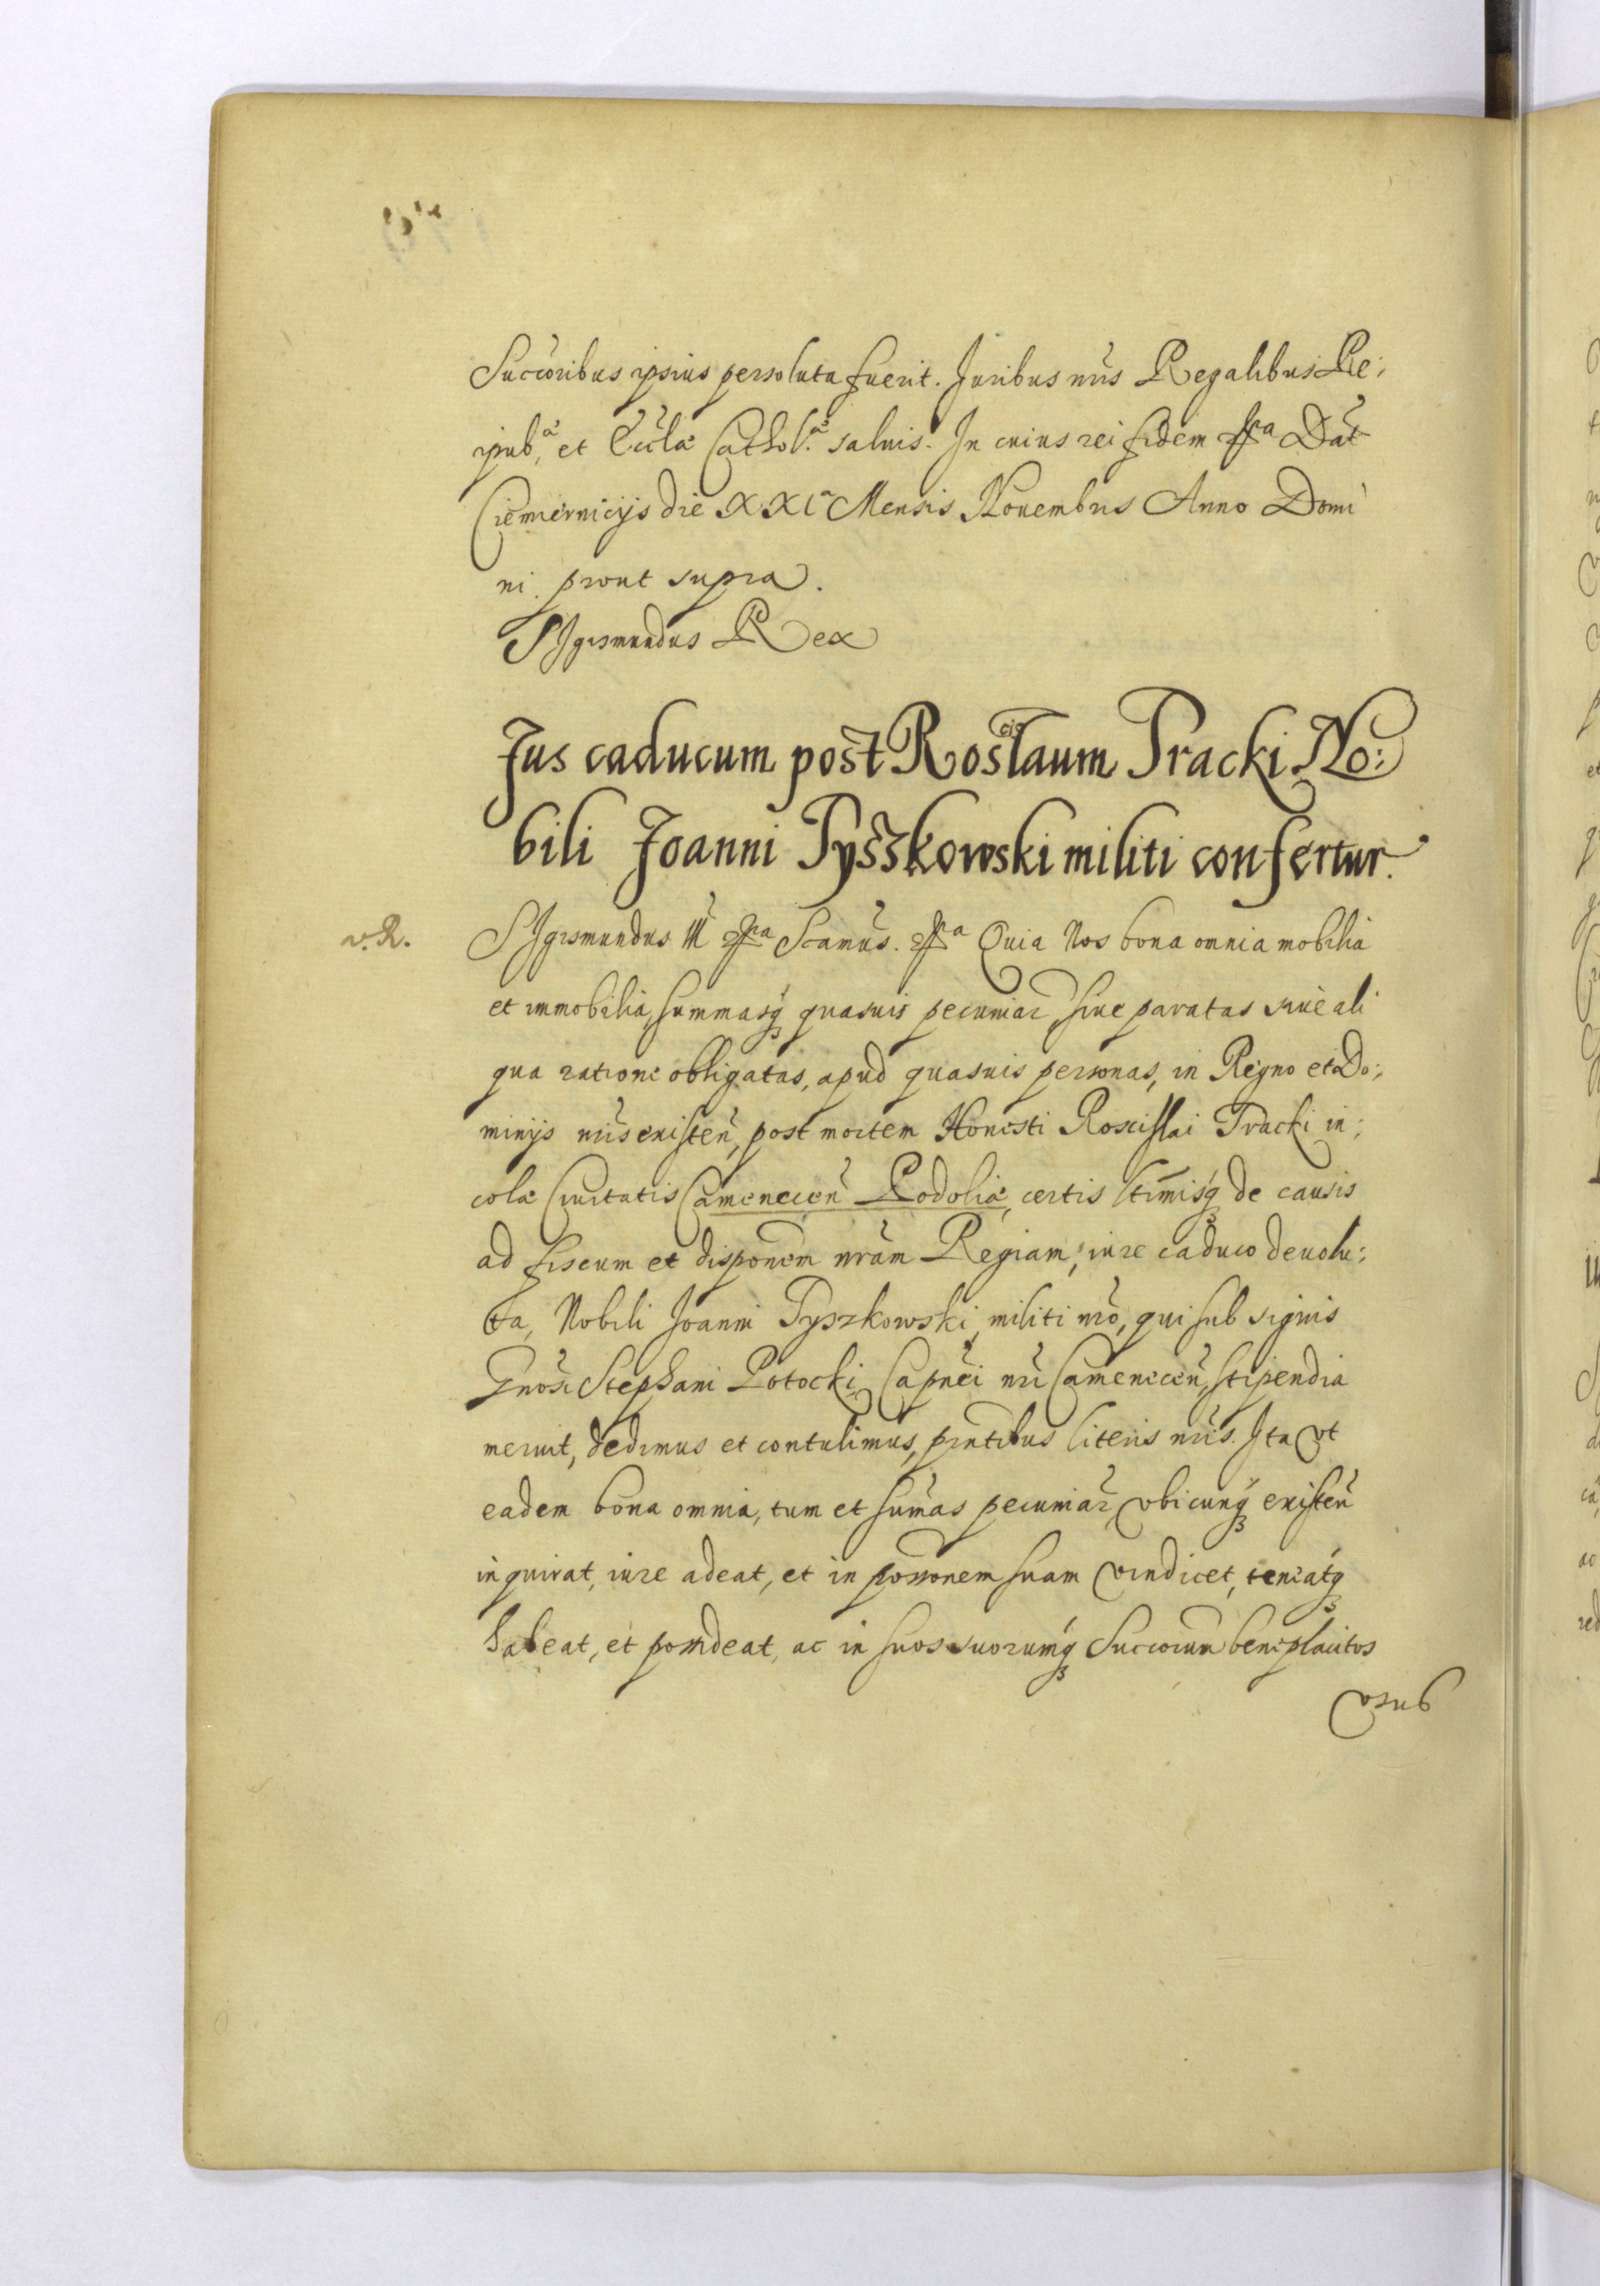 Succoribus ipsius persoluta fuerit. Juribus nris Regalibus Re:
ipub.ᵃᵉ et Eccla Cathol.ᵃᵉ saluis. In cuius rei fidem Dat
Ciemiernicijs die XXIᵃ Mensis Nouembris Anno Domi
ni. prout supra.
SIgismundus Rex
Jus caducum post Roscislaum Tracki No:
bili Joanni Tyszkowski militi confertur.
v. R.
SIgismundus III Scamus. Quia Nos bona omnia mobilia
et immobilia, summasq3 quasuis pecuniar, siue paratas siue ali
qua ratione obligatas, apud quasuis personas, in Regno et Do:
minijs nris existen, post mortem Honesti Roscislai Tracki in:
colæ Ciuitatis Camenecen Podoliæ, certis ltimisq3 de causis
ad fiscum et disponem nram Regiam, iure caduco deuolu:
ta, Nobili Joanni Tyszkowski, militi nro, qui sub signis
Gnosi Stephani Potocki Capnei nri Camenecen, stipendia
meruit, dedimus et contulimus, pntibus literis nris. Ita vt
eadem bona omnia, tum et sumas pecuniar, vbicunq3 existen
inquirat, iure adeat, et in possonem suam vindicet, teneatq3
habeat, et possideat, ac in suos suorumq3 Succorum beneplacitos
vsus